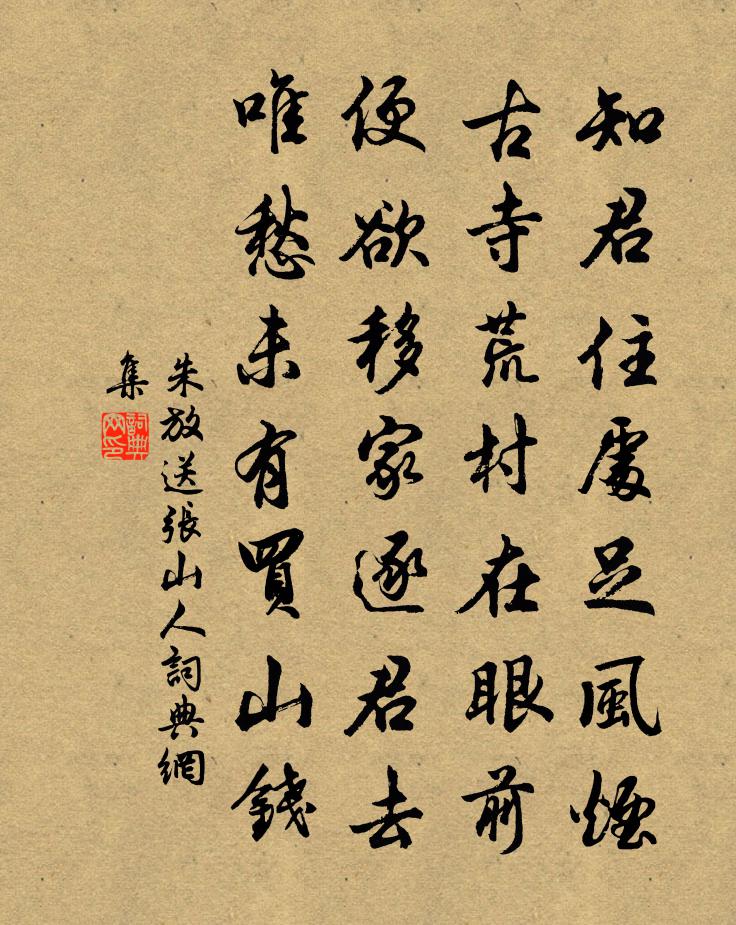 知君住處足風煙
古寺荒村在眼前
便欲移家逐君去
唯愁未有買山錢
朱放送張山人詞典網
集
詞典網印